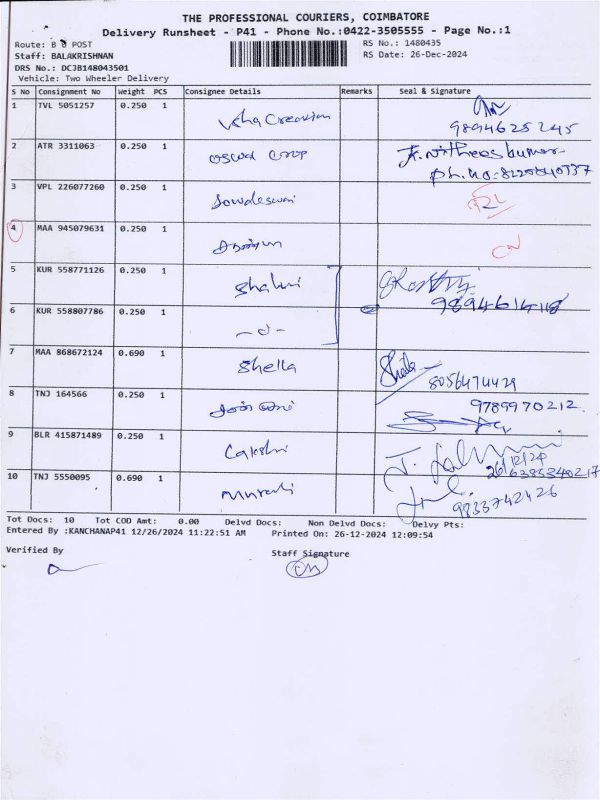 THE PROFESSIONAL COURIERS, COIMBATORE
Delivery Runsheet - P41 - Phone No.:0422-3505555 - Page No.:1
Route: B POST
RS No.: 1480435
Staff: BALAKRISHNAN
RS Date: 26-Dec-2024
DRS No.: DCJB148043501
Vehicle: Two Wheeler Delivery
S No Consignment No Weight PCS Consignee Details Remarks Seal & Signature
1 TVL 5051257 0.250 1 Usha Creation
9894625245
2 ATR 3311063 0.250 1
Ph.No:
3 VPL 226077260 0.250 1
4 MAA 945079631 0.250 1 CN
5 KUR 558771126 0.250 1 Shalini
9894614118
6 KUR 558807786 0.250 1 -d-
7 MAA 868672124 0.690 1 Shella
8056474429
8 TNJ 164566 0.250 1 9789970212
9 BLR 415871489 0.250 1
26/12/24
6385340217
10 TNJ 5550095 0.690 1 Murali
9833742426
Tot Docs: 10 Tot COD Amt: 0.00 Delvd Docs: Non Delvd Docs: Delvy Pts:
Entered By :KANCHANAP41 12/26/2024 11:22:51 AM Printed On: 26-12-2024 12:09:54
Verified By
Staff Signature